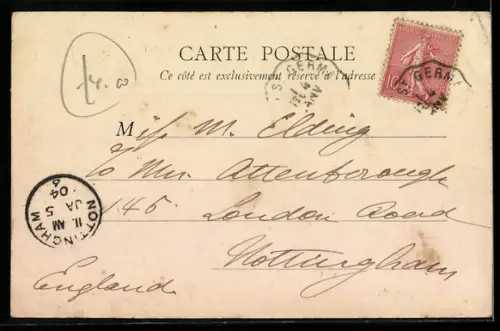 CARTE POSTALE
Ce côté est exclusivement réservé à l'adresse
Miss M. Elding
to Mrs Attenborough
145 London Road
Nottingham
England
NOTTINGHAM
11. AM
JA 5
04
St GERM
St GERM